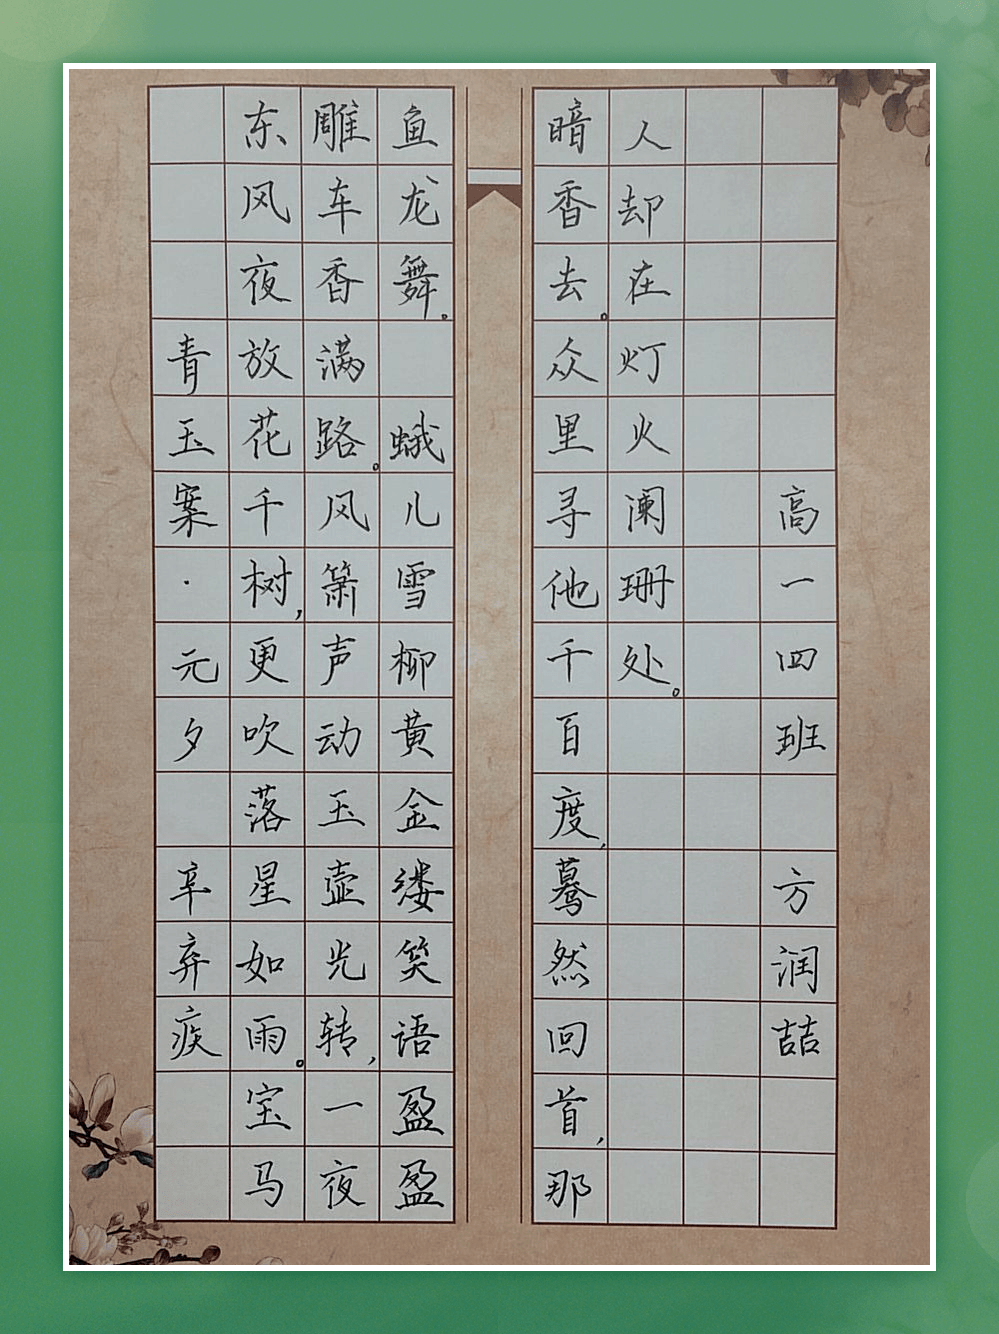 青玉案·元夕 辛弃疾
东风夜放花千树,更吹落星如雨。宝马
雕车香满路。风箫声动玉壶光转,一夜
鱼龙舞。 蛾儿雪柳黄金缕笑语盈盈
暗香去。众里寻他千百度,蓦然回首,那
人却在灯火阑珊处。
高一四班 方润喆